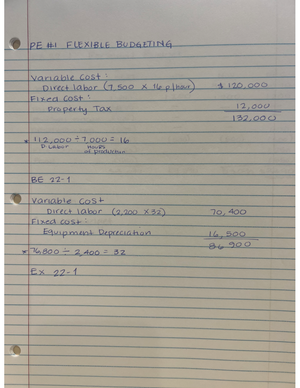 PE #1 FLEXIBLE BUDGETING
Variable Cost:
Direct labor (7,500 x 16 p/hour) $ 120,000
Fixed Cost:
Property Tax 12,000
132,000
* 112,000 ÷ 7,000 = 16
D. Labor Hours of production
BE 22-1
Variable Cost
Direct labor (2,200 x 32) 70,400
Fixed Cost:
Equipment Depreciation 16,500
86 900
* 76,800 ÷ 2,400 = 32
Ex 22-1